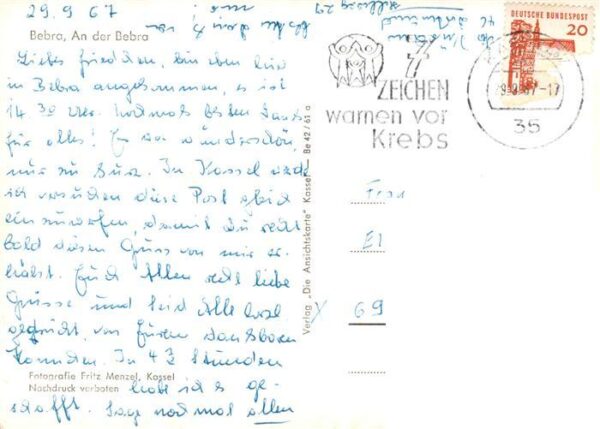 29.9.67
Bebra, An der Bebra
Liebes Friedchen, bin eben hier
in Bebra angekommen, es ist
14.30 Uhr. Nochmals besten Dank
für alles! Es war wunderschön,
nur zu kurz. In Kassel werde
ich versuchen diese Post gleich
einzuwerfen, damit Du recht
bald diesen Gruss von mir er-
hälst. Euch Allen recht liebe
Grüsse und seid Alle
gedrückt, von Eurem dankbaren
In 4½ Stunden
Fotografie Fritz Menzel, Kassel
Nachdruck verboten
habe ich es ge-
schafft. Sage nochmal allen
Verlag „Die Ansichtskarte“ Kassel — Be 42/61 a
DEUTSCHE BUNDESPOST
20
7
ZEICHEN
warnen vor
Krebs
35
Frau
El
69